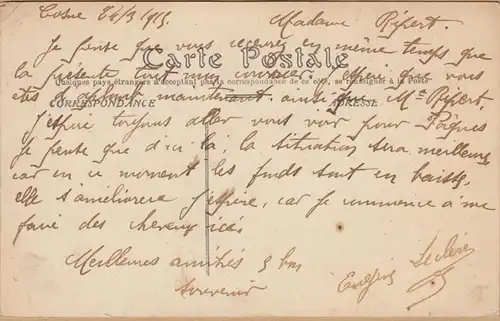 Cosne 24/3 1915.
Madame Ripert.
Je pense que vous recevrez en même temps que
Carte Postale
la présente tout mon courrier. espère que vous
Quelques pays étrangers n'acceptant pas la correspondance de ce côté, se renseigner à la Poste
CORRESPONDANCE
ADRESSE
êtes d'aplomb maintenant. ainsi que Mr Ripert,
J'espère toujours aller vous voir pour Pâques
Je pense que d'ici là, la situation sera meilleure
car en ce moment les fonds sont en baisse,
elle s'améliorera j'espère, car je commence à me
faire des cheveux ici.
Meilleures amitiés & bon
souvenir
Leclère